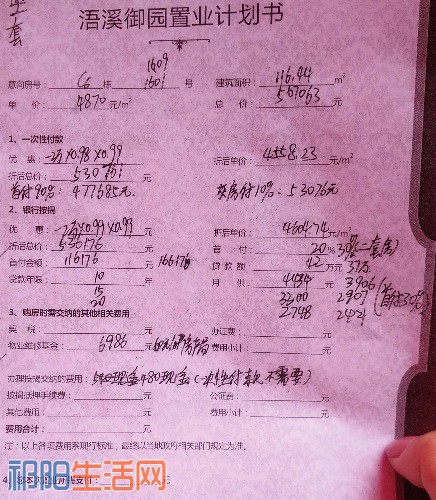 浯溪御园置业计划书
1609
意向房号: C6 栋 1601 号 建筑面积: 116.94 m²
单 价: 4870 元/m² 总 价: 567063 元
1、一次性付款
优 惠: -2万×0.98×0.99 折后单价: 4558.23 元/m²
折后总价: 530761 元
首付90%: 477685元 交房付10%: 53076元
2、银行按揭
优 惠: -2万×0.99×0.99 折后单价: 4604.74 元/m²
折后总价: 536176 元 首 付: 20% 30%(二套房)
首付金额: 116176 元 166176 贷 款 额: 42万 元 37万
贷款年限: 10 年 月 供: 4434 元 3906
15 3200 2907 (首付30%)
20 2748 2421
3、购房时需交纳的其他相关费用
契 税: 元 办证费: 元
物业维修基金: 6986 元 费用小计: 元
办理按揭交纳的费用: 现金480现金(一次性付款不需要)
按揭抵押手续费: 元 公证费: 元
其他费用: 元 费用小计: 元
费用合计: 元
注:以上各项费用系现行标准,最终以当地政府相关部门规定为准。
祁阳生活网